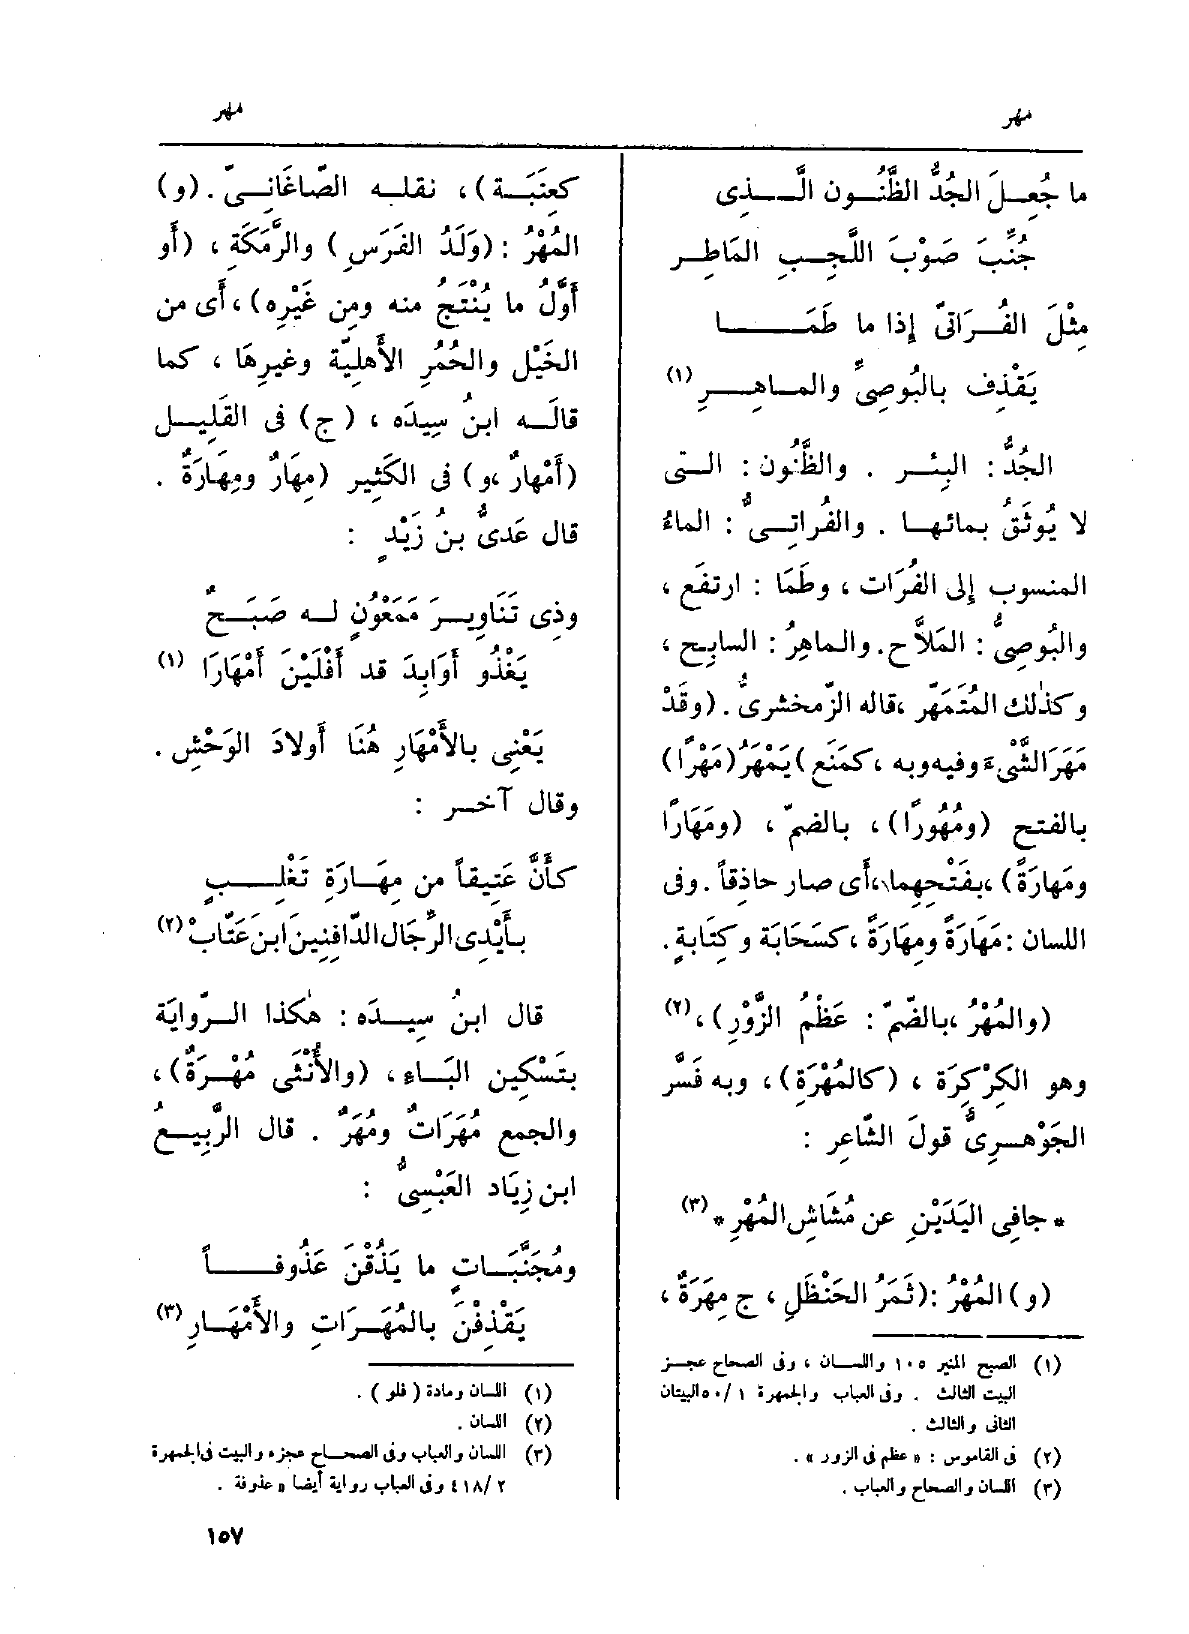 مهر
مهر
ما جُعِلَ الجُدُّ الظَّنُون الَّذِى
جُنِّبَ صَوْبَ اللَّجِبِ المَاطِرِ
مِثْلَ الفُراتِىِّ إذا ما طَمَا
يَقْذِف بالبُوصِىِّ والماهِرِ (١)
الجُدُّ : البِئر . والظَّنُون : التى
لا يُوثَقُ بمائها . والفُراتِىُّ : الماءُ
المنسوب إلى الفُرَات ، وطَمَا : ارتفَع ،
والبُوصِىُّ : المَلاَّح . والماهِرُ : السابِح ،
وكذلك المُتَمَهِّر ،قاله الزّمخشرىُّ . (وقَدْ
مَهَرَ الشَّىْءَ وفيه وبه ، كمَنَع) يَمْهَرُ (مَهْرًا)
بالفتح (ومُهُورًا) ، بالضمّ ، (ومَهَارًا
ومَهارَةً) ،بفَتْحِهما، أَى صار حاذِقاً . وفى
اللسان : مَهَارَةً ومِهَارَةً ، كسَحَابَة وكِتَابةٍ .
(والمُهْرُ ، بالضّمّ : عَظْمُ الزَّوْرِ) ، (٢)
وهو الكِرْكِرَة ، (كالمُهْرَةِ) ، وبه فَسَّر
الجَوْهرِىُّ قولَ الشّاعِر :
* جافِى اليَدَيْنِ عن مُشَاشِ المُهْرِ * (٣)
(و) المُهْرُ : (ثَمَرُ الحَنْظَلِ ، ج مِهَرَةٌ ،
(١) الصبح المنير ١٠٥ واللسان ، وفى الصحاح عجز
البيت الثالث . وفى العباب والجمهرة ١/ ٥٠ البيتان
الثانى والثالث .
(٢) فى القاموس : « عظم فى الزور » .
(٣) اللسان والصحاح والعباب .
كعِنَبَة) ، نقله الصّاغَانِىّ . (و)
المُهْرُ : (وَلَدُ الفَرَسِ) والرَّمَكَةِ ، (أَو
أَوَّلُ ما يُنْتَجُ منه ومِن غَيْرِه) ، أَى من
الخَيْل والحُمُرِ الأَهليّة وغيرِهَا ، كما
قالَه ابنُ سِيدَه ، (ج) فى القَلِيل
(أَمْهارٌ ،و) فى الكَثِير (مِهَارٌ ومِهَارَةٌ .
قال عَدِىُّ بنُ زَيْدٍ :
وذِى تَنَاوِيرَ مَمْعُونٍ له صَبَحٌ
يَغْذُو أَوَابِدَ قد أَفْلَيْنَ أَمْهَارَا (١)
يَعْنِى بالأَمْهَارِ هُنَا أَولادَ الوَحْشِ .
وقال آخر :
كأَنَّ عَتِيقاً من مِهَارَةِ تَغْلِبٍ
بأَيْدِى الرِّجَال الدّافِنِين ابنَ عَتَّابْ (٢)
قال ابنُ سِيدَه : هكذا الرّوايَة
بتَسْكِين البَاء ، (والأُنْثَى مُهْرَةٌ) ،
والجمع مُهَرَاتٌ ومُهَرٌ . قال الرَّبِيعُ
ابن زِيَاد العَبْسِىُّ :
ومُجَنَّبَاتٍ ما يَذُقْنَ عَذُوفاً
يَقْذِفْنَ بالمُهَرَاتِ والأَمْهَارِ (٣)
(١) اللسان ومادة ( فلو ) .
(٢) اللسان .
(٣) اللسان والعباب وفى الصحاح عجزه والبيت فى الجمهرة
٢ /٤١٨ وفى العباب رواية أيضا « عذوفة .
١٥٧